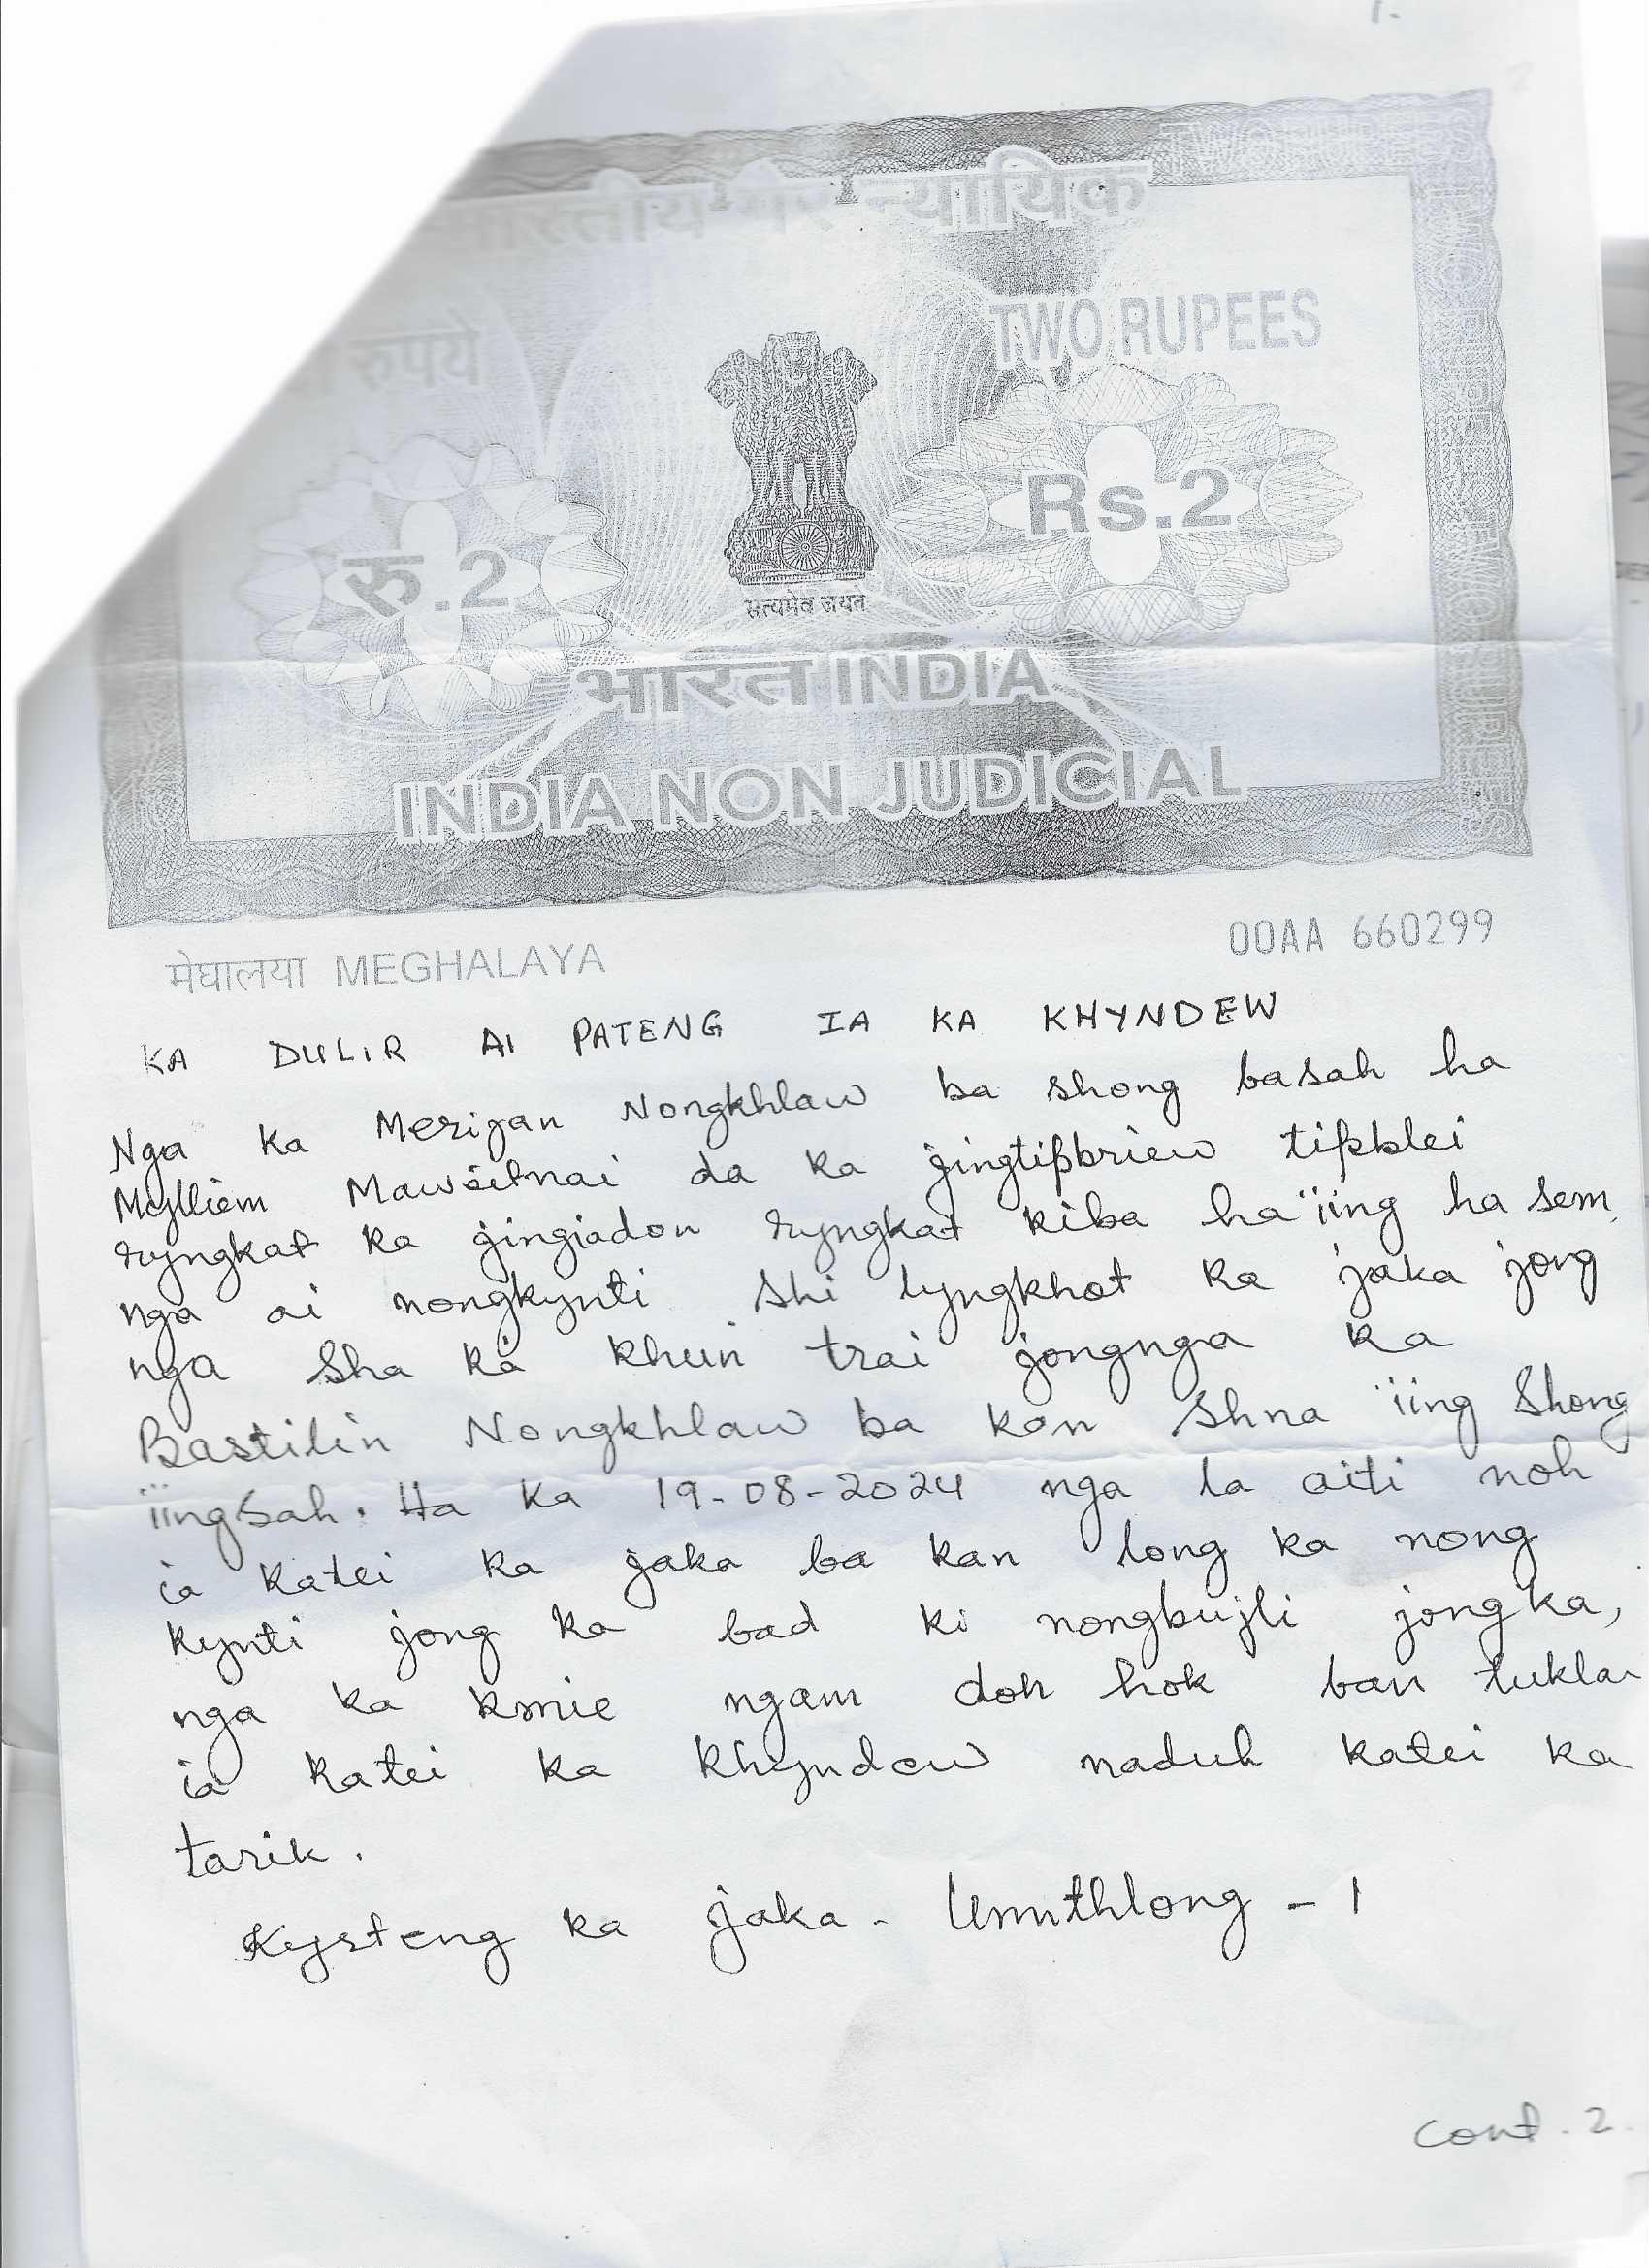 1.
भारतीय गैर न्यायिक
रुपये
TWO RUPEES
रु.2
Rs.2
सत्यमेव जयते
भारत INDIA
INDIA NON JUDICIAL
मेघालया MEGHALAYA
00AA 660299
KA DULIR AI PATENG IA KA KHYNDEW
Nga ka Merijan Nongkhlaw ba shong basah ha
Mylliem da ka jingtipbriew tipblei
ryngkat ka jingiadon ryngkat kiba ha ïing ha sem
nga ai nongkynti shi lyngkhot ka jaka jong
nga sha ka khun trai jongnga ka
Bastilin Nongkhlaw ba kan shna ïing shong
ïingsah. Ha ka 19-08-2024 nga la aiti noh
ia katei ka jaka ba kan long ka nong
kynti jong ka bad ki nongbujli jongka,
nga ka kmie ngam don hok ban tuklar
ia katei ka khyndew naduh katei ka
tarik.
Kyrteng ka jaka - Umthlong - 1
Cont. 2.